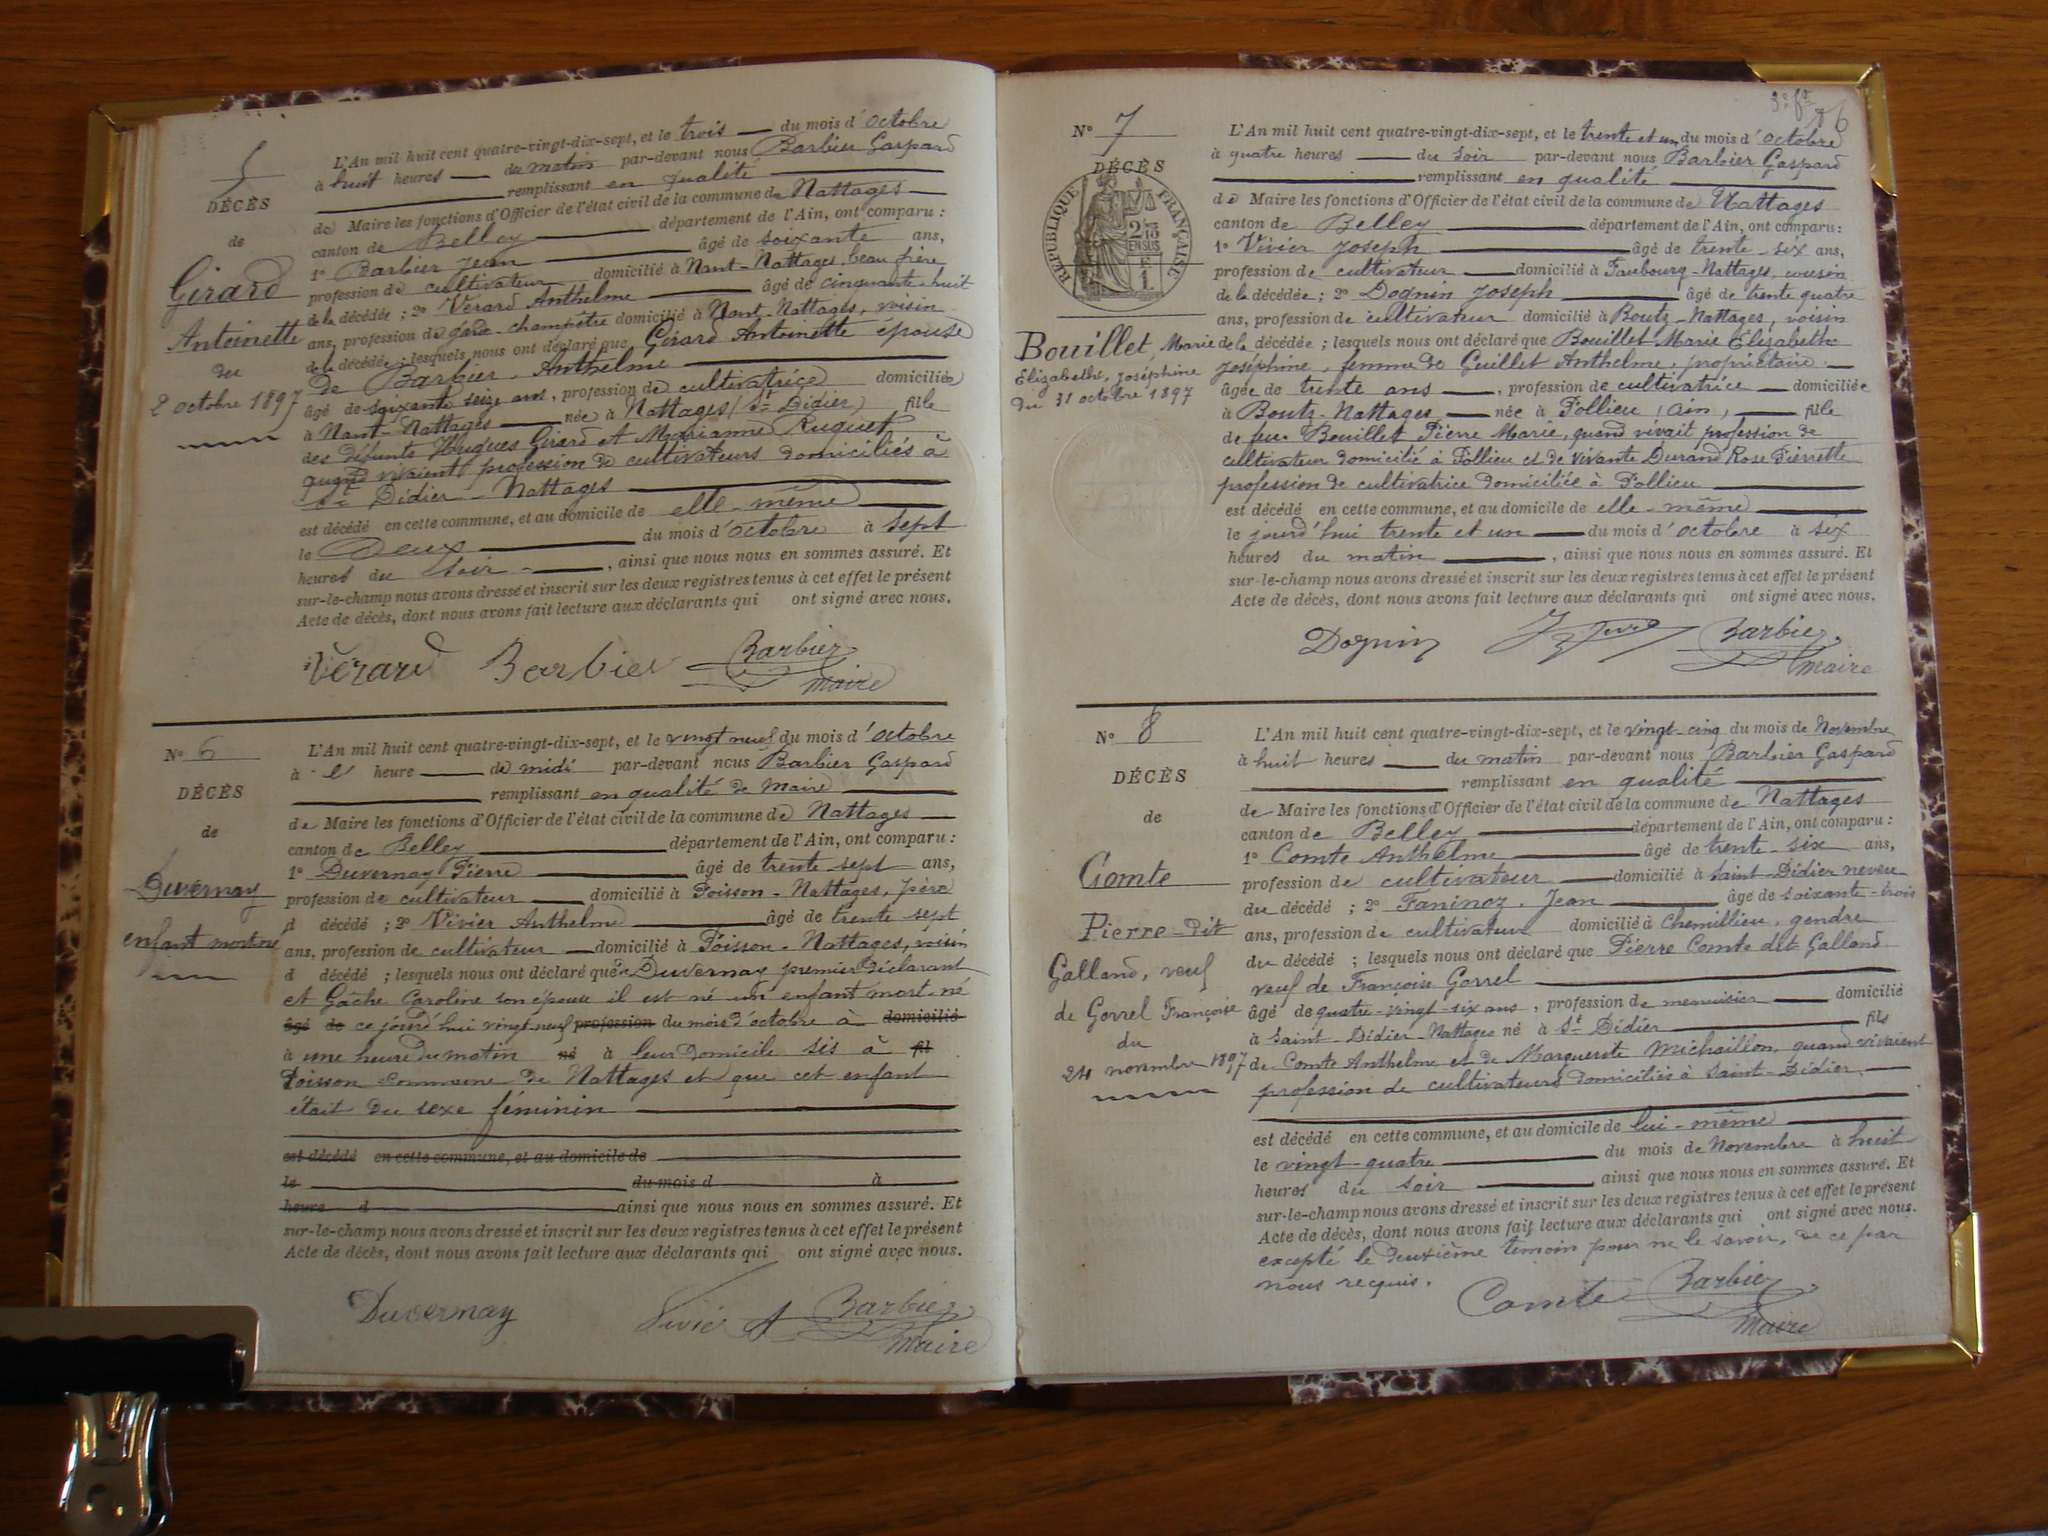 5
DÉCÈS
de
Girard
Antoinette
du
2 octobre 1897
L'An mil huit cent quatre-vingt-dix-sept, et le trois du mois d'octobre
à huit heures du matin par-devant nous Barbier Gaspard
remplissant en qualité
de Maire les fonctions d'Officier de l'état civil de la commune de Nattages
canton de Belley département de l'Ain, ont comparu :
1º Barbier Jean âgé de soixante ans,
profession de cultivateur domicilié à Nant-Nattages, beau frère
de la décédée ; 2º Vérard Anthelme âgé de cinquante-huit
ans, profession de garde-champêtre domicilié à Nant-Nattages, voisin
de la décédée ; lesquels nous ont déclaré que Girard Antoinette épouse
de Barbier Anthelme
âgé de soixante seize ans, profession de cultivatrice domiciliée
à Nant-Nattages née à Nattages (St Didier) fille
des défunts Hugues Girard et Marianne Ruguet
quand vivaient, profession de cultivateurs domiciliés à
St Didier-Nattages
est décédé en cette commune, et au domicile de elle-même
le deux du mois d'octobre à sept
heures du soir, ainsi que nous nous en sommes assuré. Et
sur-le-champ nous avons dressé et inscrit sur les deux registres tenus à cet effet le présent
Acte de décès, dont nous avons fait lecture aux déclarants qui ont signé avec nous.
Vérard Barbier Barbier
maire
Nº 6
DÉCÈS
de
Duvernay
enfant mort né
L'An mil huit cent quatre-vingt-dix-sept, et le vingt neuf du mois d'octobre
à heure de midi par-devant nous Barbier Gaspard
remplissant en qualité de Maire
de Maire les fonctions d'Officier de l'état civil de la commune de Nattages
canton de Belley département de l'Ain, ont comparu :
1º Duvernay Pierre âgé de trente sept ans,
profession de cultivateur domicilié à Poisson-Nattages, père
d décédé ; 2º Vivier Anthelme âgé de trente sept
ans, profession de cultivateur domicilié à Poisson-Nattages, voisin
d décédé ; lesquels nous ont déclaré que de Duvernay premier déclarant
et Gâche Caroline son épouse il est né un enfant mort-né
âgé de ce jourd'hui vingt neuf profession du mois d'octobre à domicilié
à une heure du matin né à leur domicile sis à fil
Poisson commune de Nattages et que cet enfant
était du sexe féminin
est décédé en cette commune, et au domicile de
le du mois d à
heure d ainsi que nous nous en sommes assuré. Et
sur-le-champ nous avons dressé et inscrit sur les deux registres tenus à cet effet le présent
Acte de décès, dont nous avons fait lecture aux déclarants qui ont signé avec nous.
Duvernay Vivier A Barbier
maire
Nº 7
DÉCÈS
RÉPUBLIQUE FRANÇAISE
2/10
EN SUS
Bouillet, Marie
Elizabeth, Joséphine
du 31 octobre 1897
L'An mil huit cent quatre-vingt-dix-sept, et le trente et un du mois d'octobre
à quatre heures du soir par-devant nous Barbier Gaspard
remplissant en qualité
de Maire les fonctions d'Officier de l'état civil de la commune de Nattages
canton de Belley département de l'Ain, ont comparu :
1º Vivier Joseph âgé de trente-six ans,
profession de cultivateur domicilié à Faubourg-Nattages, cousin
de la décédée ; 2º Dognin Joseph âgé de trente quatre
ans, profession de cultivateur domicilié à Boutz-Nattages, voisin
de la décédée ; lesquels nous ont déclaré que Bouillet Marie Elizabeth
Joséphine, femme de Guillet Anthelme, propriétaire
âgée de trente ans, profession de cultivatrice domiciliée
à Boutz-Nattages née à Pollieu (Ain) fille
de feu Bouillet Pierre Marie, quand vivait profession de
cultivateur domicilié à Pollieu et de vivante Durand Rose Pierrette
profession de cultivatrice domiciliée à Pollieu
est décédé en cette commune, et au domicile de elle-même
le jourd'hui trente et un du mois d'octobre à six
heures du matin, ainsi que nous nous en sommes assuré. Et
sur-le-champ nous avons dressé et inscrit sur les deux registres tenus à cet effet le présent
Acte de décès, dont nous avons fait lecture aux déclarants qui ont signé avec nous.
Dognin Barbier
maire
Nº 8
DÉCÈS
de
Comte
Pierre dit
Galland, veuf
de Gorrel Françoise
du
24 novembre 1897
L'An mil huit cent quatre-vingt-dix-sept, et le vingt-cinq du mois de Novembre
à huit heures du matin par-devant nous Barbier Gaspard
remplissant en qualité
de Maire les fonctions d'Officier de l'état civil de la commune de Nattages
canton de Belley département de l'Ain, ont comparu :
1º Comte Anthelme âgé de trente-six ans,
profession de cultivateur domicilié à Saint-Didier neveu
du décédé ; 2º Faninoz Jean âgé de soixante-trois
ans, profession de cultivateur domicilié à Chemillieu, gendre
du décédé ; lesquels nous ont déclaré que Pierre Comte dit Galland
veuf de Françoise Gorrel
âgé de quatre-vingt-six ans, profession de menuisier domicilié
à Saint-Didier-Nattages né à St Didier fils
de Comte Anthelme et de Marguerite Michaillon, quand vivaient
profession de cultivateurs domiciliés à Saint-Didier
est décédé en cette commune, et au domicile de lui-même
le vingt-quatre du mois de Novembre à huit
heures du soir ainsi que nous nous en sommes assuré. Et
sur-le-champ nous avons dressé et inscrit sur les deux registres tenus à cet effet le présent
Acte de décès, dont nous avons fait lecture aux déclarants qui ont signé avec nous.
excepté le deuxième témoin pour ne le savoir, de ce par
nous requis.
Comte Barbier
maire